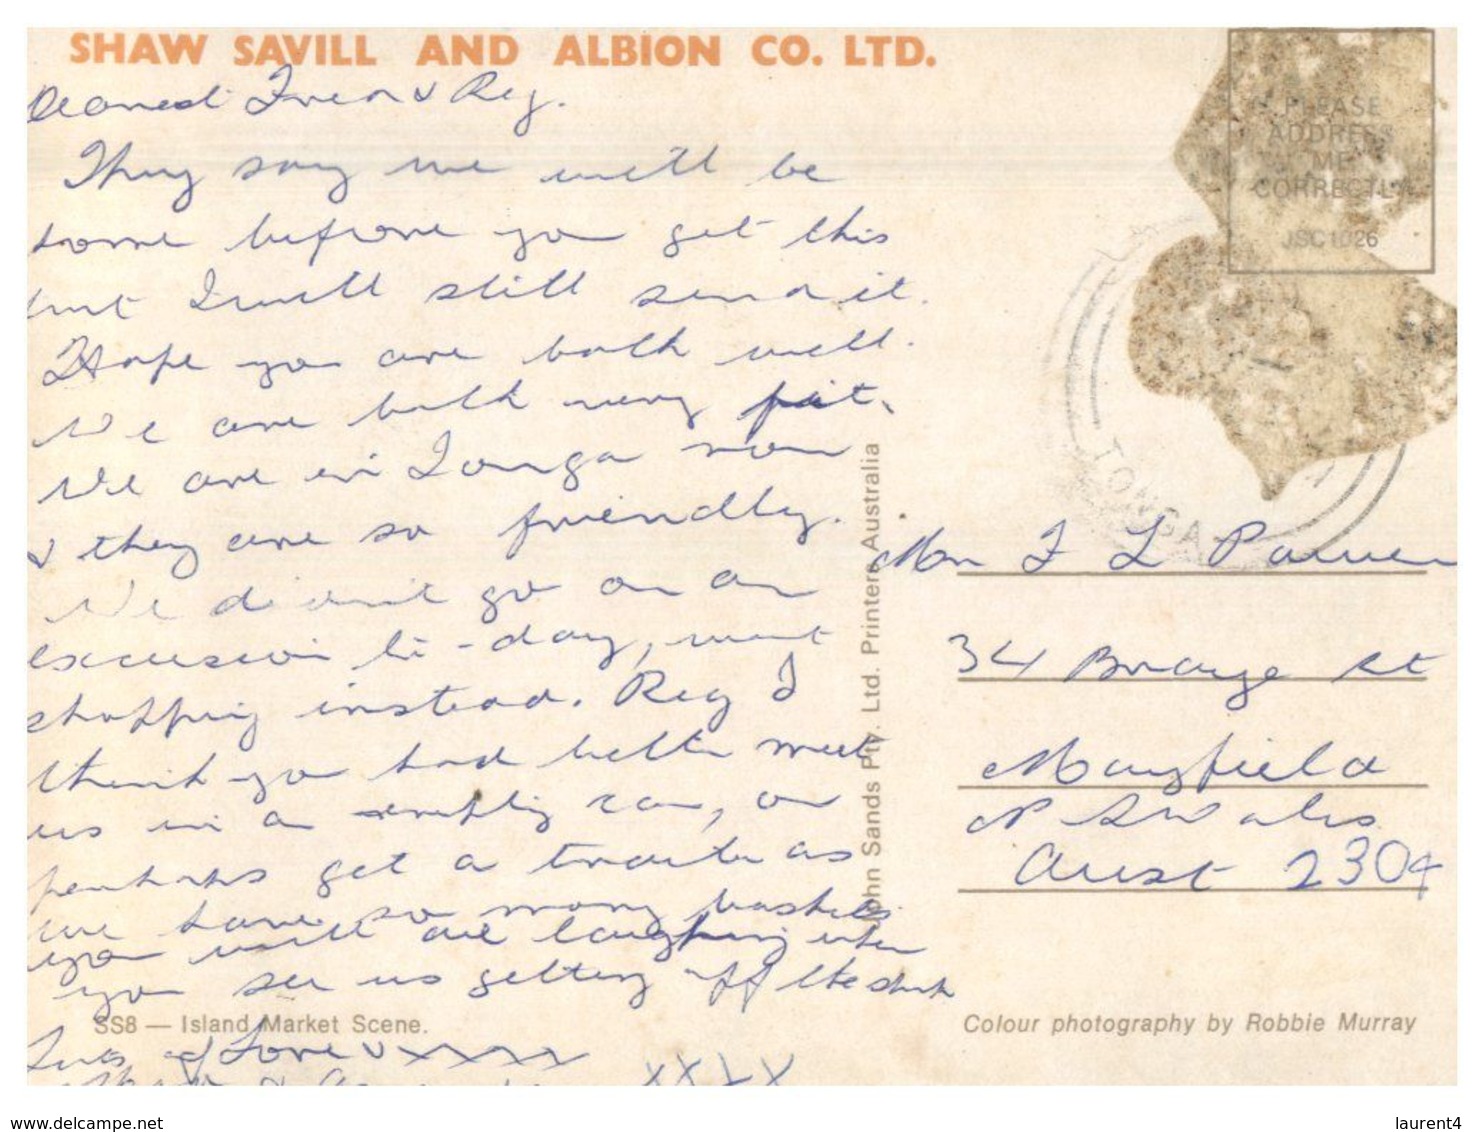 SHAW SAVILL AND ALBION CO. LTD.
Dearest & Reg.
They say we will be
home before you get this
but I will still send it.
Hope you are both well.
We are both very fit.
We are in Tonga now
& they are so friendly.
We didn't go on an
excursion to-day, went
shopping instead. Reg I
think you had better meet
us in a empty car, or
perhaps get a trailer as
we have so many baskets
you will all laughing when
you see us getting off the ship
SS8 — Island Market Scene.
Lots of Love & xxxxx
xxxx
PLEASE
ADDRESS
ME
CORRECTLY
JSC1026
TONGA
John Sands Pty. Ltd. Printers Australia
F L
34 St
Mayfield
N S Wales
Aust 2304
Colour photography by Robbie Murray
www.delcampe.net
laurent4